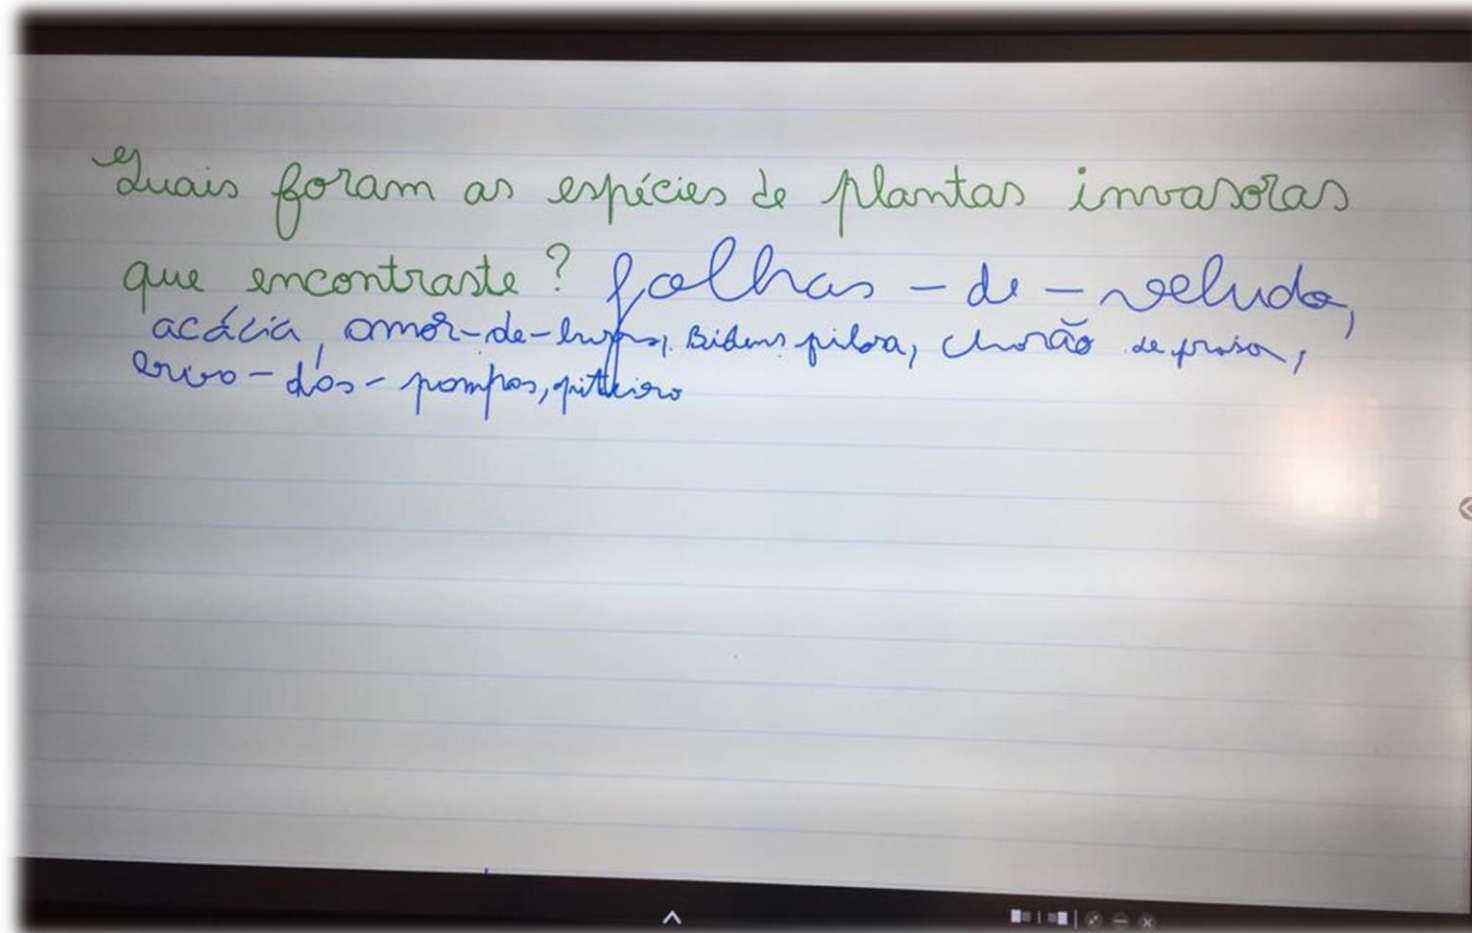 Quais foram as espécies de plantas invasoras
que encontraste? folhas-de-veludo,
acácia, amor-de-burro, Bidens pilosa, chorão de praia,
erva-dos-pampas, piteira